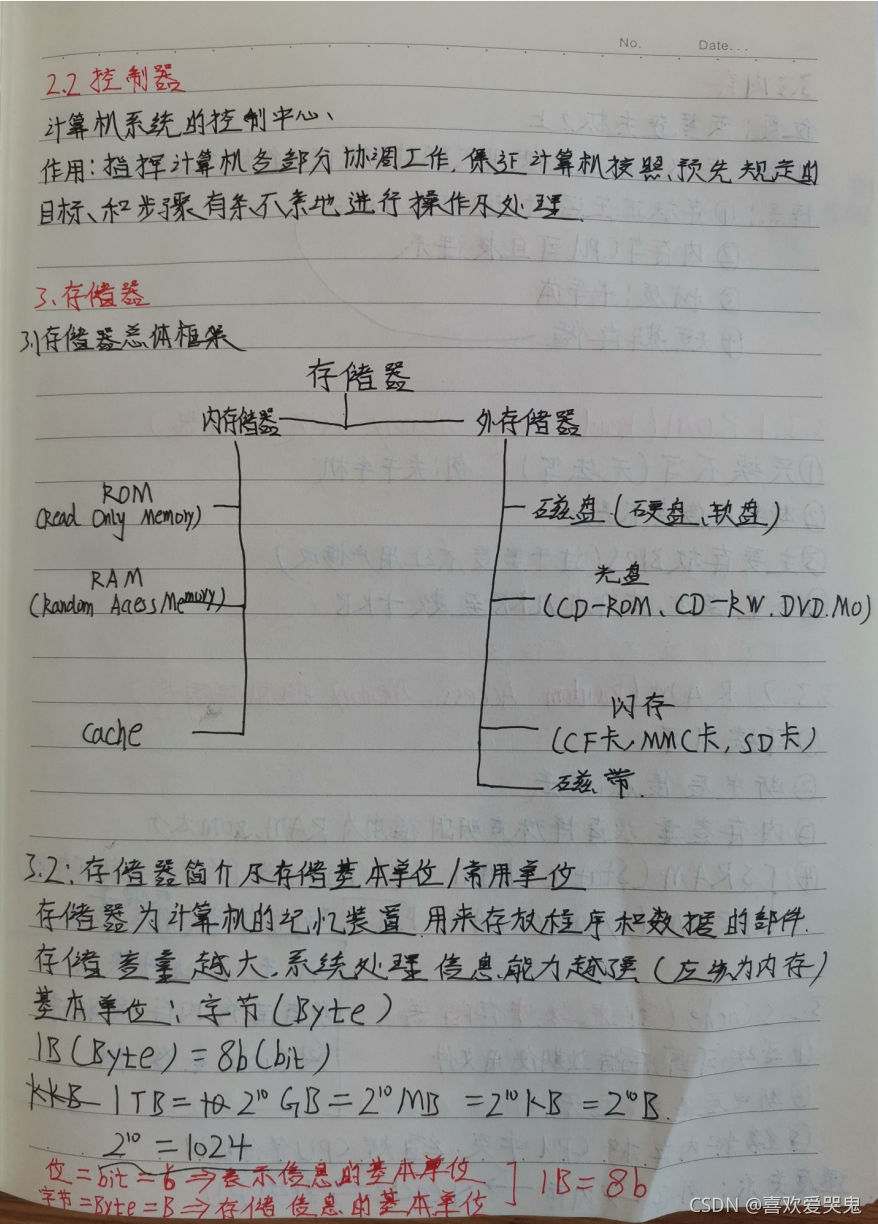 No. Date...
2.2 控制器
计算机系统的控制中心、
作用：指挥计算机各部分协调工作，保证计算机按照预先规定的
目标、和步骤有条不紊地进行操作及处理
3、存储器
3.1存储器总体框架
存储器
内存储器 外存储器
ROM
(Read Only Memory)
磁盘(硬盘、软盘)
RAM
(Random Acess Memory)
光盘
(CD-ROM、CD-RW.DVD.MO)
闪存
Cache
(CF卡,MMC卡,SD卡)
磁带
3.2：存储器简介及存储基本单位/常用单位
存储器为计算机的记忆装置 用来存放程序和数据的部件.
存储容量越大,系统处理信息能力越强(应该为内存)
基本单位：字节(Byte)
1B(Byte)=8b(bit)
1TB=2¹⁰GB=2¹⁰MB=2¹⁰KB=2¹⁰B.
2¹⁰=1024
位=bit=b⇒表示信息的基本单位
字节=Byte=B⇒存储信息的基本单位
] 1B=8b
CSDN @喜欢爱哭鬼